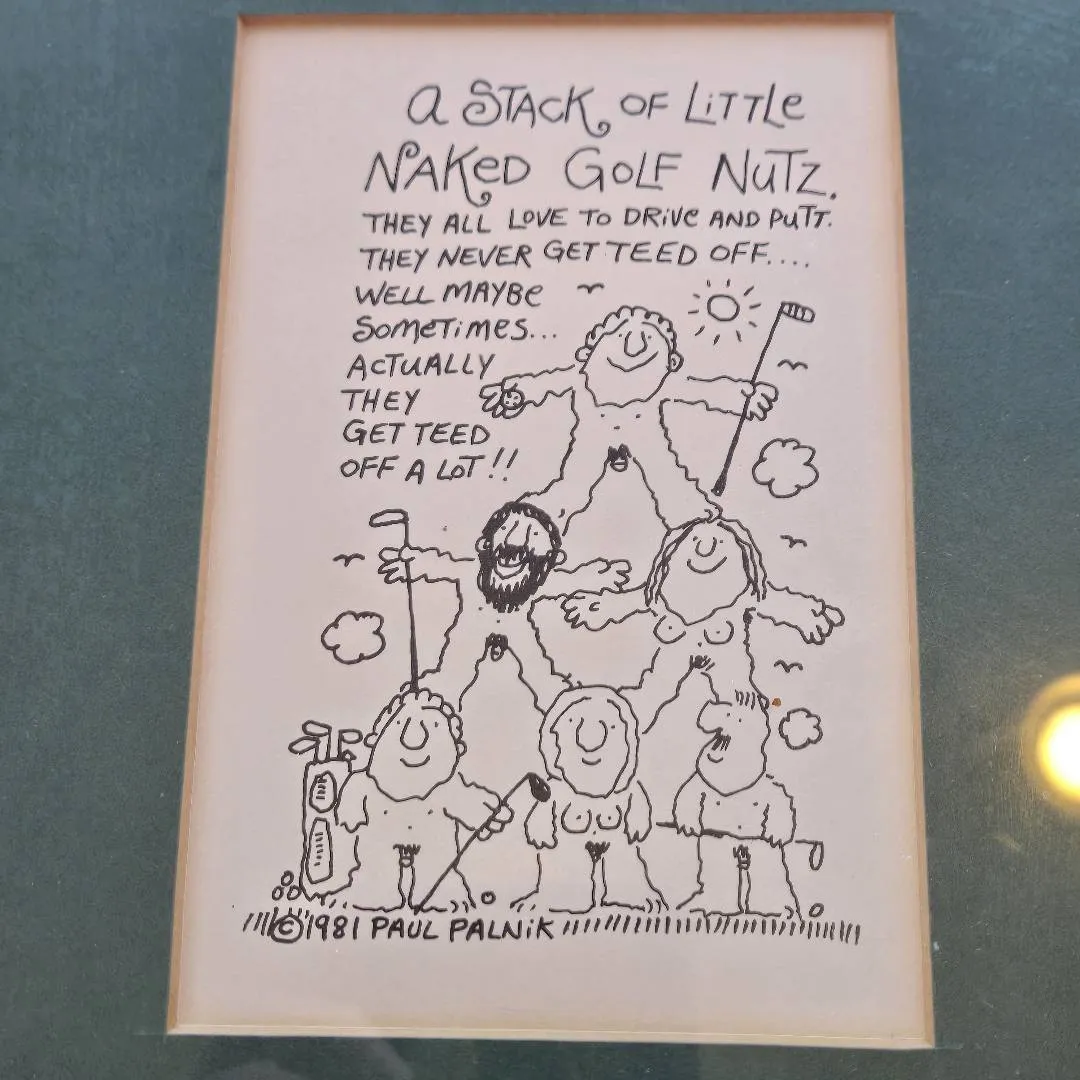 A STACK OF LITTLE
NAKED GOLF NUTZ.
THEY ALL LOVE TO DRIVE AND PUTT.
THEY NEVER GET TEED OFF....
WELL MAYBE
SOMETIMES...
ACTUALLY
THEY
GET TEED
OFF A LOT!!
©1981 PAUL PALNIK